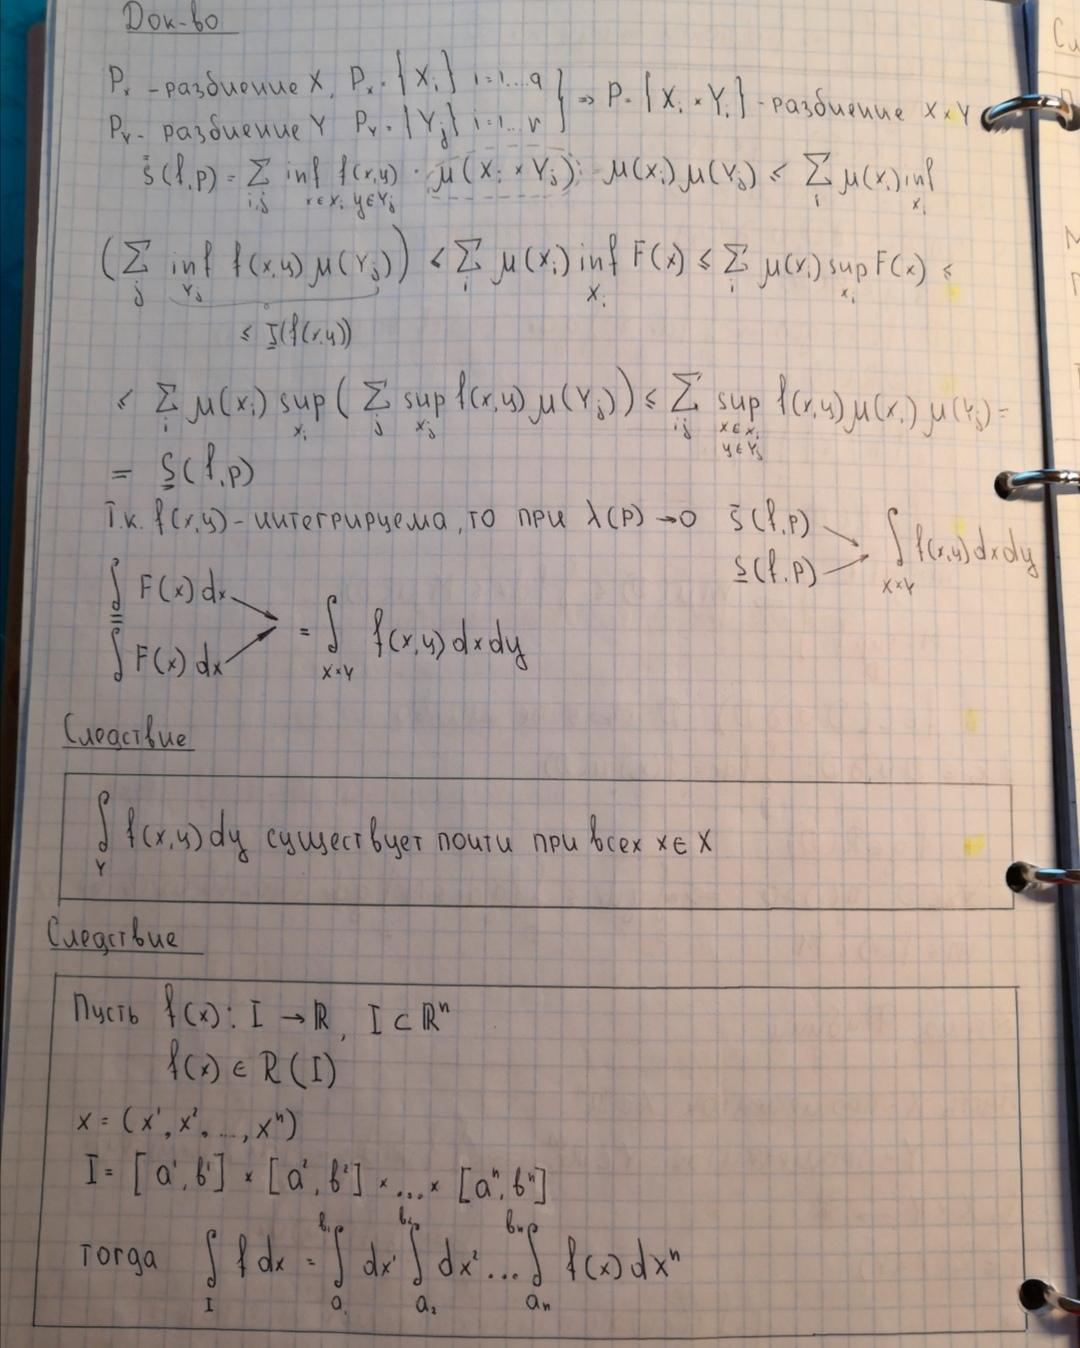 Док-во
Pₓ - разбиение X, Pₓ = {Xᵢ} i=1...q
P_Y - разбиение Y P_Y = {Yⱼ} i=1...r } ⇒ P = {Xᵢ × Yᵢ} - разбиение X×Y
s̄(f,p) = ∑_{i,j} inf_{x∈Xᵢ y∈Yⱼ} f(x,y) · μ(Xᵢ × Yⱼ) = μ(xᵢ) μ(Yⱼ) ≤ ∑_i μ(xᵢ) inf_{xᵢ}
(∑_j inf_{Yⱼ} f(x,y) μ(Yⱼ)) ≤ ∑_i μ(xᵢ) inf_{Xᵢ} F(x) ≤ ∑_i μ(xᵢ) sup_{xᵢ} F(x) ≤
≤ I(f(x,y))
≤ ∑_i μ(xᵢ) sup_{xᵢ} (∑_j sup_{xⱼ} f(x,y) μ(Yⱼ)) ≤ ∑_{ij} sup_{x∈xᵢ y∈Yⱼ} f(x,y) μ(xᵢ) μ(Yⱼ) =
= S̲(f,p)
Т.к. f(x,y) - интегрируема, то при λ(P) → 0 s̄(f,P)
s̲(f,P) → ∫_{X×Y} f(x,y) dx dy
∫ F(x) dx
=
∫ F(x) dx → = ∫_{X×Y} f(x,y) dx dy
Следствие
∫_Y f(x,y) dy существует почти при всех x ∈ X
Следствие
Пусть f(x): I → ℝ, I ⊂ ℝⁿ
f(x) ∈ R(I)
x = (x¹, x², ..., xⁿ)
I = [a¹, b¹] × [a², b²] × ... × [aⁿ, bⁿ]
тогда ∫_I f dx = ∫_{a₁}^{b₁} dx¹ ∫_{a₂}^{b₂} dx² ... ∫_{aₙ}^{bₙ} f(x) dxⁿ